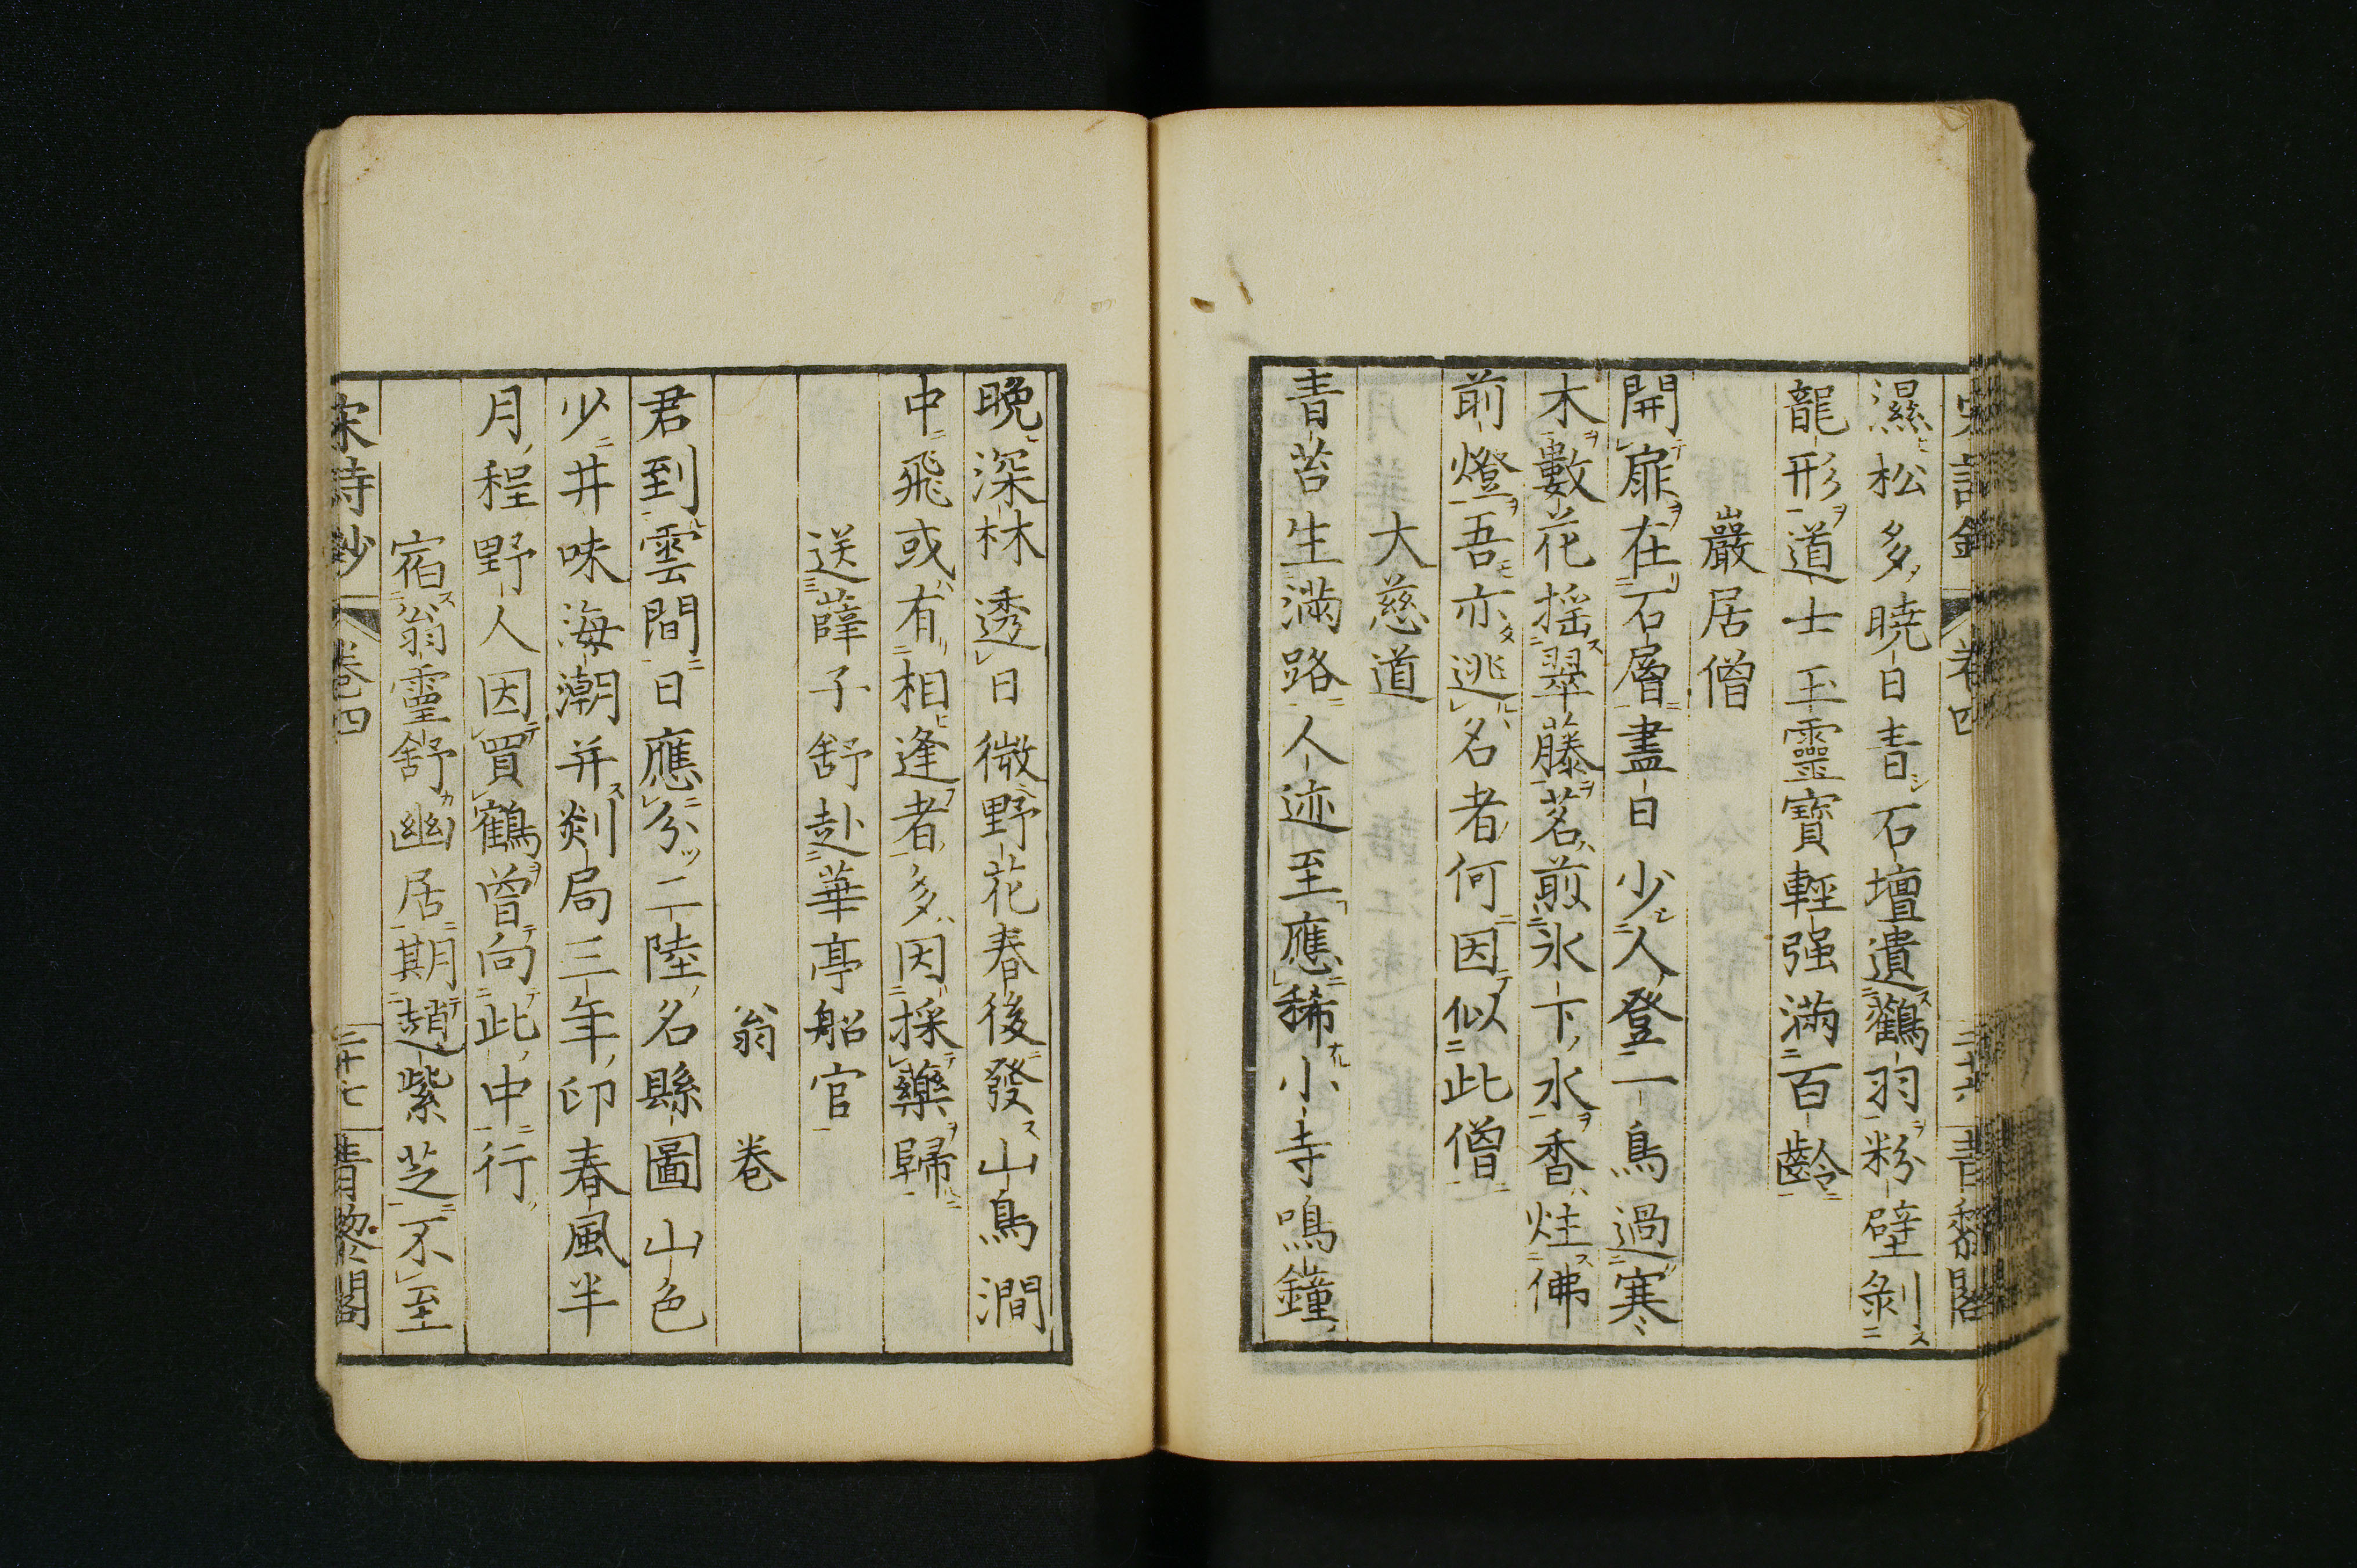 卷四
濕松多曉日青石壇遺鶴羽粉壁剝
龍形道士玉靈寶輕强滿百齡
巖居僧
開扉在石層盡日少人登一鳥過寒
木數花摇翠藤茗煎氷下水香炷佛
前燈吾亦逃名者何因似此僧
大慈道
青苔生滿路人迹至應稀小寺鳴鐘
晚深林透日微野花春後發山鳥澗
中飛或有相逢者多因採藥歸
送薛子舒赴華亭船官
翁卷
君到雲間日應分二陸名縣圖山色
少井味海潮并剡局三年印春風半
月程野人因買鶴曾向此中行
宿翁靈舒幽居期趙紫芝不至
宋詩鈔 卷四 二十七 青黎閣